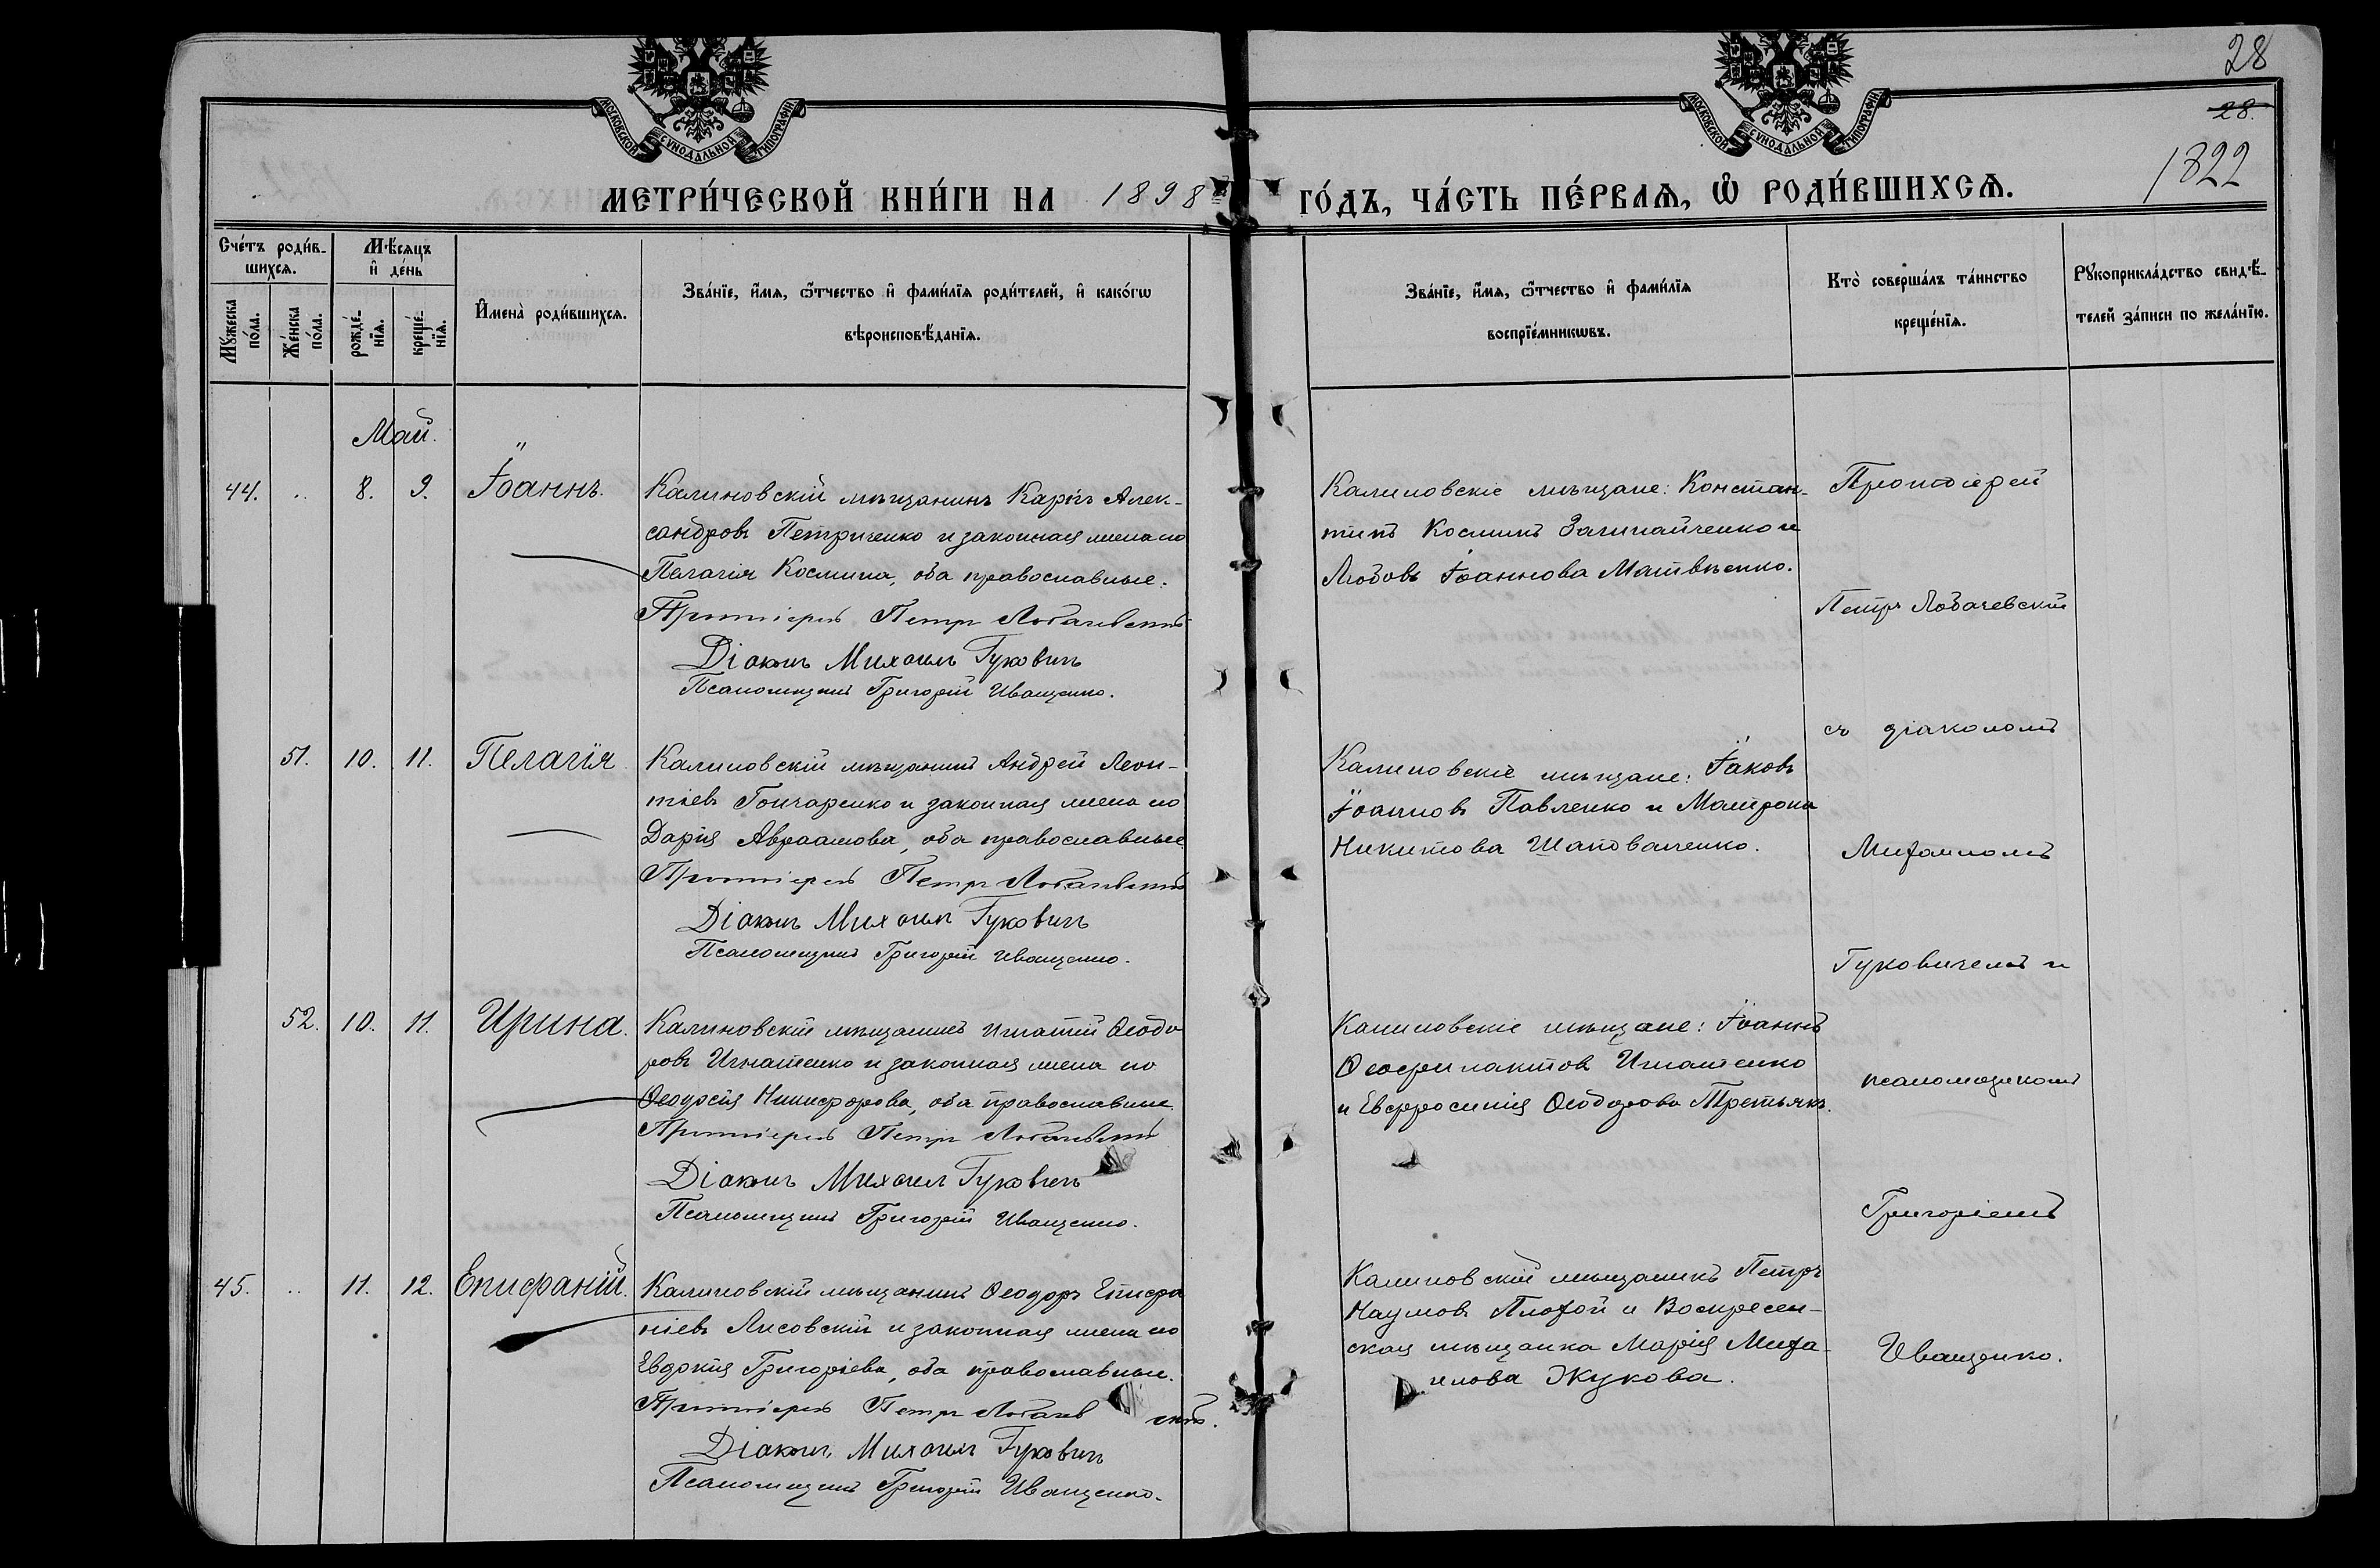 28
28.
1822
МОСКОВСКОЙ СѴНОДАЛЬНОЙ ТИПОГРАФІИ
МОСКОВСКОЙ СѴНОДАЛЬНОЙ ТИПОГРАФІИ
МЕТРИ́ЧЕСКОЙ КНИ́ГИ НА 1898 ГО́ДЪ, ЧА́СТЬ ПЕ́РВАѦ, Ѡ҆ РОДИ́ВШИХСѦ.
Сче́тъ роди́в-
шихсѧ.
Мѣ́сяцъ
и҆ де́нь
Мꙋ́жеска
по́ла.
Же́нска
по́ла.
рожде́-
нїѧ.
креще́-
нїѧ.
И҆мена̀ роди́вшихсѧ.
Зва́нїе, и҆́мѧ, ѻ҆́тчество и҆ фами́лїѧ роди́телей, и҆ како́гѡ
вѣроисповѣ́данїѧ.
Зва́нїе, и҆́мѧ, ѻ҆́тчество и҆ фами́лїѧ
воспрїе́мникѡвъ.
Кто̀ соверша́лъ та́инство
креще́нїѧ.
Рꙋкоприкла́дство свидѣ́-
телей за́писи по жела́нїю.
Май.
44. .. 8. 9. Іоаннъ.
Калиновскій мѣщанинъ Карпъ Алек-
сандровъ Петриченко и законная жена его
Пелагія Космина, оба православные.
Протоіерей Петръ Лобачевскій
Діаконъ Михаилъ Гуковичъ
Псаломщикъ Григорій Иващенко.
Калиновскіе мѣщане: Констан-
тинъ Косминъ Зачинайченко и
Любовь Іоаннова Матвѣенко.
51. 10. 11. Пелагія
Калиновскій мѣщанинъ Андрей Леон-
тіевъ Гончаренко и законная жена его
Дарія Авраамова, оба православные
Протоіерей Петръ Лобачевскій
Діаконъ Михаилъ Гуковичъ
Псаломщикъ Григорій Иващенко.
Калиновскіе мѣщане: Іаковъ
Іоанновъ Павленко и Матрона
Никитова Шаповаленко.
52. 10. 11. Ирина.
Калиновскій мѣщанинъ Игнатій Ѳеодо
ровъ Игнатенко и законная жена его
Ѳеодосія Никифорова, оба православные.
Протоіерей Петръ Лобачевскій
Діаконъ Михаилъ Гуковичъ
Псаломщикъ Григорій Иващенко.
Калиновскіе мѣщане: Іоаннъ
Ѳеофилактовъ Игнатенко
и Евфросинія Ѳеодорова Третьякъ.
45. .. 11. 12. Епифаній.
Калиновскій мѣщанинъ Ѳеодоръ Епифа
ніевъ Лисовскій и законная жена его
Евдокія Григоріева, оба православные.
Протоіерей Петръ Лобачев скій.
Діаконъ Михаилъ Гуковичъ
Псаломщикъ Григорій Иващенко.
Калиновскій мѣщанинъ Петръ
Наумовъ Плохой и Воскресен-
ская мѣщанка Марія Миха-
илова Жукова.
Протоіерей
Петръ Лобачевскій
съ діакономъ
Михаиломъ
Гуковичемъ и
псаломщикомъ
Григоріемъ
Иващенко.